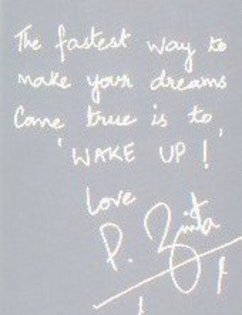 The fastest way to
make your dreams
Come true is to
'WAKE UP!'
Love
P. Zinta